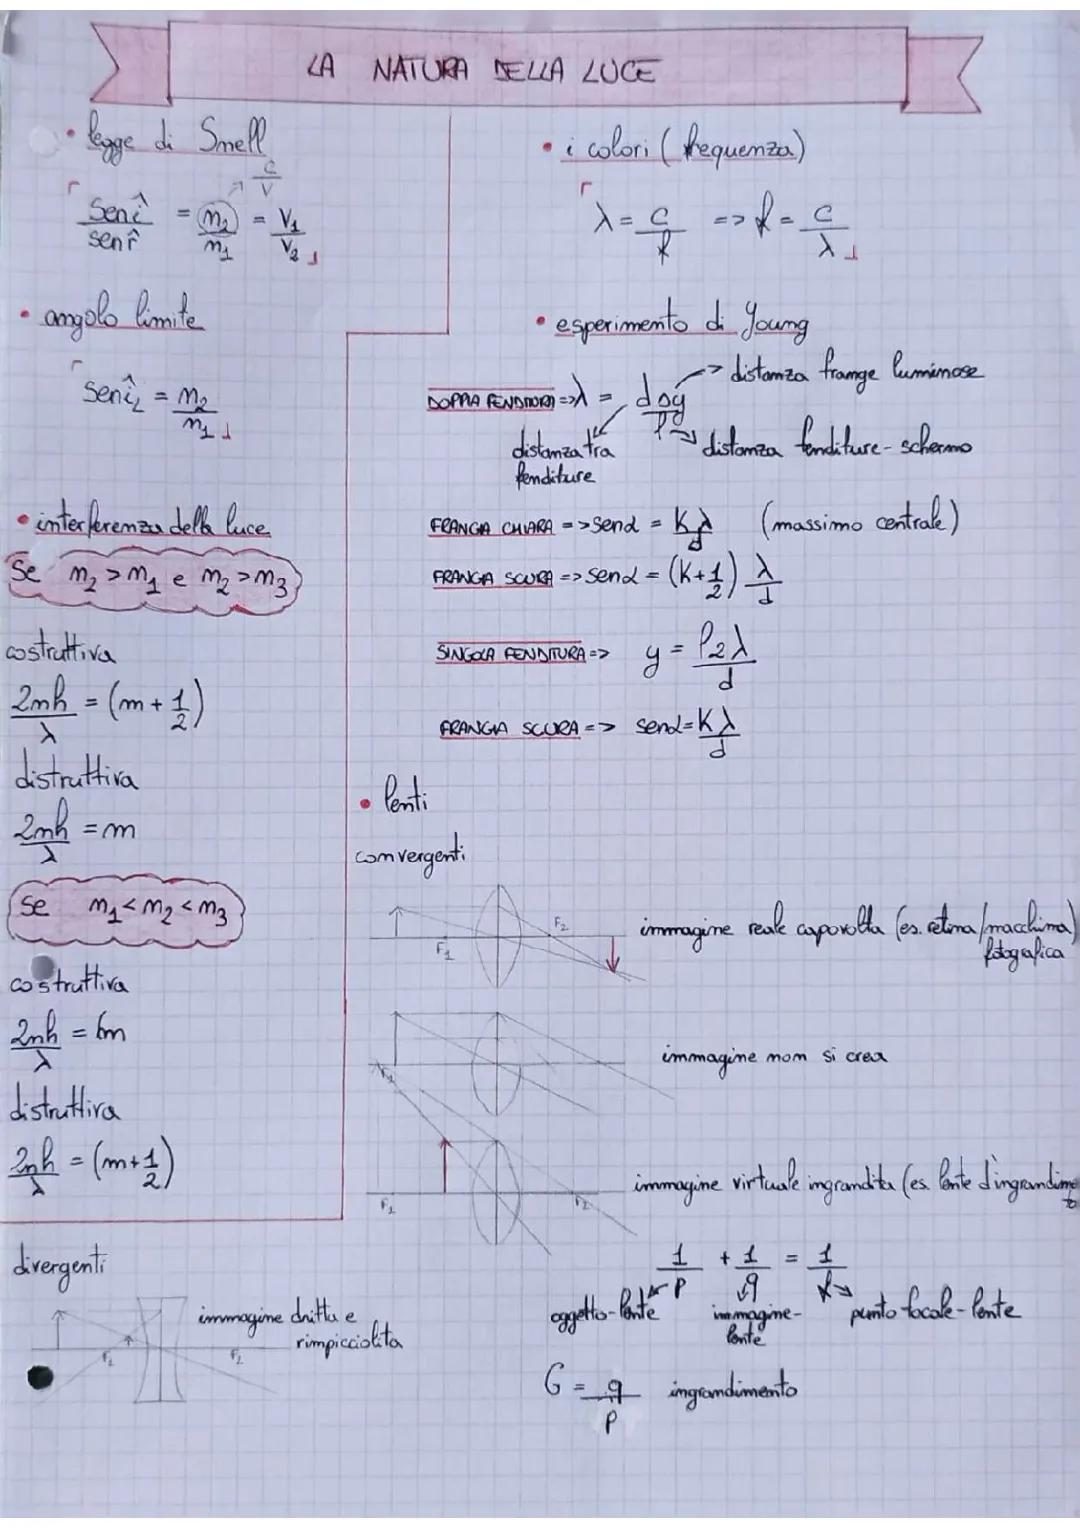 LA NATURA DELLA LUCE
• legge di Snell
c/v
sen î / sen r̂ = n₂/n₁ = V₁/V₂
• angolo limite
sen î_L = n₂/n₁
• interferenza della luce
Se n₂ > n₁ e n₂ > n₃
costruttiva
2nh/λ = (m + 1/2)
distruttiva
2nh/λ = m
Se n₁ < n₂ < n₃
costruttiva
2nh/λ = m
distruttiva
2nh/λ = (m + 1/2)
• i colori (frequenza)
λ = c/f => f = c/λ
• esperimento di Young
DOPPIA FENDITURA => λ = d∆y/l → distanza frange luminose
distanza tra fenditure
distanza fenditure - schermo
FRANGIA CHIARA => sen α = Kλ/d (massimo centrale)
FRANGIA SCURA => sen α = (K + 1/2) λ/d
SINGOLA FENDITURA => y = l2λ/d
FRANGIA SCURA => sen α = Kλ/d
• lenti
convergenti
F₁ F₂
immagine reale capovolta (es. retina/macchina fotografica
immagine non si crea
F₁ F₂
immagine virtuale ingrandita (es. lente d'ingrandimento
1/p + 1/q = 1/f
oggetto-lente
immagine-lente
punto focale-lente
G = q/p ingrandimento
divergenti
F₁ F₂
immagine dritta e
rimpicciolita